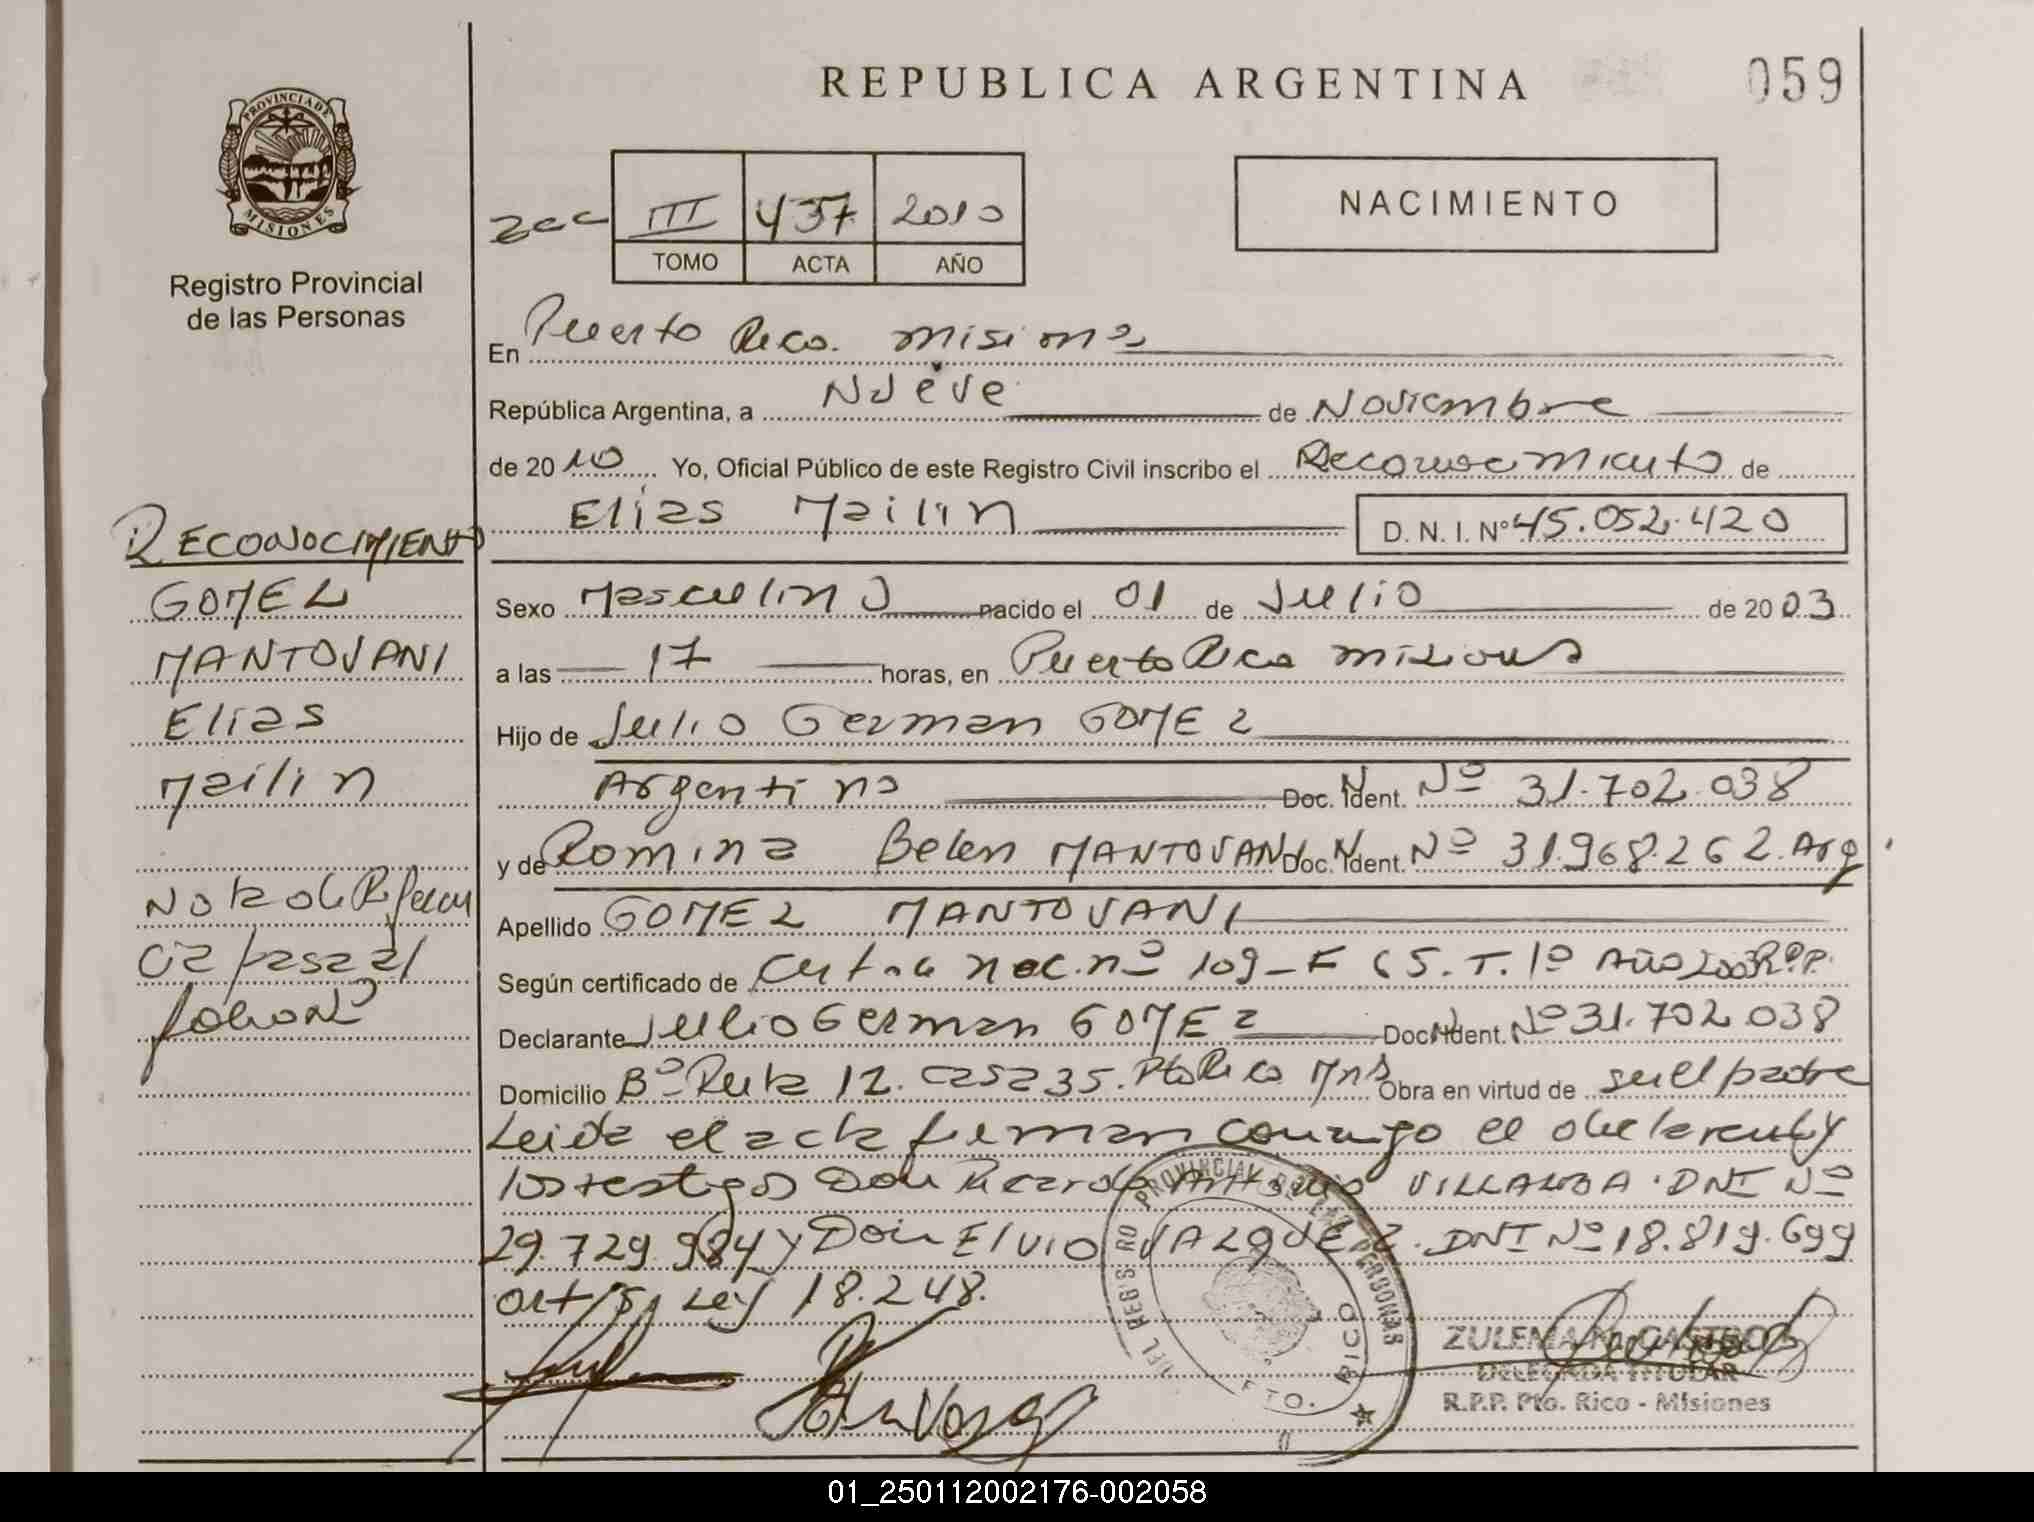 REPUBLICA ARGENTINA
059
PROVINCIA DE
MISIONES
Registro Provincial
de las Personas
III 437 2010
TOMO ACTA AÑO
NACIMIENTO
En Puerto Rico. Misiones
República Argentina, a Nueve de Noviembre
de 2010 Yo, Oficial Público de este Registro Civil inscribo el Reconocimiento de
Elias Mailin D. N. I. Nº 45.052.420
Sexo Masculino nacido el 01 de Julio de 2003
a las 17 horas, en Puerto Rico Misiones
Hijo de Julio German GOMEZ
Argentino Doc. Ident. Nº 31.702.038
y de Romina Belen MANTOVANI Doc. Ident. Nº 31.968.262. Arg
Apellido GOMEZ MANTOVANI
Según certificado de nac. nº 109-F 65. T. 1º Año 2003 R.P.P.
Declarante Julio German GOMEZ Doc. Ident. Nº 31.702.038
Domicilio Bº Ruta 12. casa 35. Pto Rico Mns Obra en virtud de ser el padre
Leida el acta firman conmigo el declarante y
los testigos Don Ricardo Antonio VILLALBA. DNI Nº
29.729.984 y Don Elvio VAZQUEZ. DNI Nº 18.819.699
art 5, Ley 18.248.
RECONOCIMIENTO
GOMEZ
MANTOVANI
Elias
Mailin
Nota de Referen
cia pasa al
folio Nº
REGISTRO PROVINCIAL DE LAS PERSONAS
PTO. RICO
ZULEMA N. CASTRO
DELEGADA TITULAR
R.P.P. Pto. Rico - Misiones
01_250112002176-002058